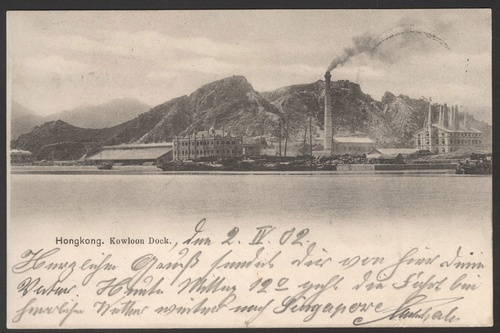 Hongkong. Kowloon Dock., den 2. IV. 02.
Herzliche Grüße sendet dir von hier Dein
Vater. Heute Mittag 12° geht die Fahrt bei
herrlichem Wetter weiter nach Singapore